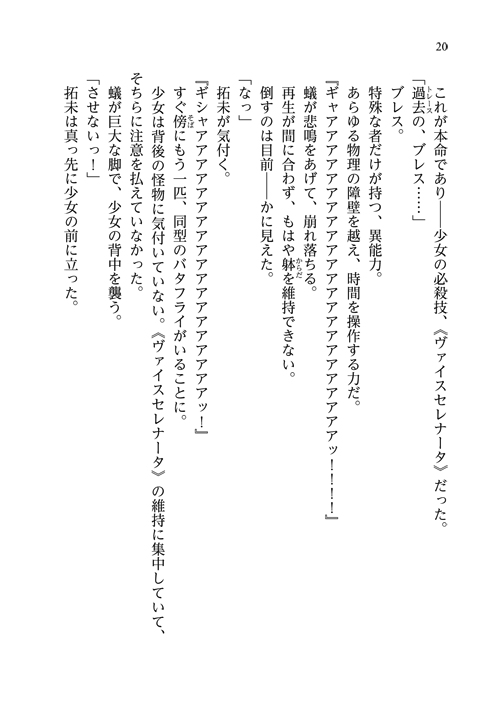 20
これが本命であり――少女の必殺技、《ヴァイスセレナータ》だった。
「過去の、ブレス……」
トレース
ブレス。
特殊な者だけが持つ、異能力。
あらゆる物理の障壁を越え、時間を操作する力だ。
『ギャアアアアアアアアアアアアアアアアアアアアアアアアアッ！！！！』
蟻が悲鳴をあげて、崩れ落ちる。
再生が間に合わず、もはや躰を維持できない。
からだ
倒すのは目前――かに見えた。
「なっ」
拓未が気付く。
『ギシャアアアアアアアアアアアアアアアアアアアッ！』
すぐ傍にもう一匹、同型のバタフライがいることに。
そば
少女は背後の怪物に気付いていない。《ヴァイスセレナータ》の維持に集中していて、
そちらに注意を払えていなかった。
蟻が巨大な脚で、少女の背中を襲う。
「させないっ！」
拓未は真っ先に少女の前に立った。